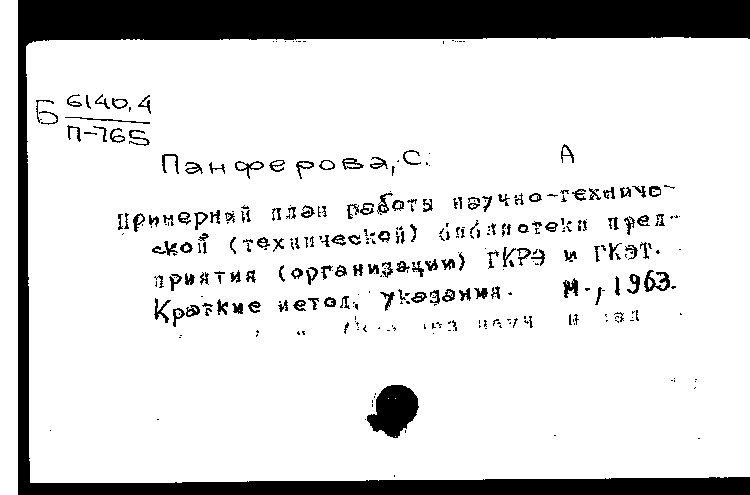 Б 6140,4
П-765
Панферова, С. А
Примерный план работы научно-техниче-
ской (технической) библиотеки пред-
приятия (организации) ГКРЭ и ГКЭТ.
Краткие метод. указания. М., 1963.
науч и